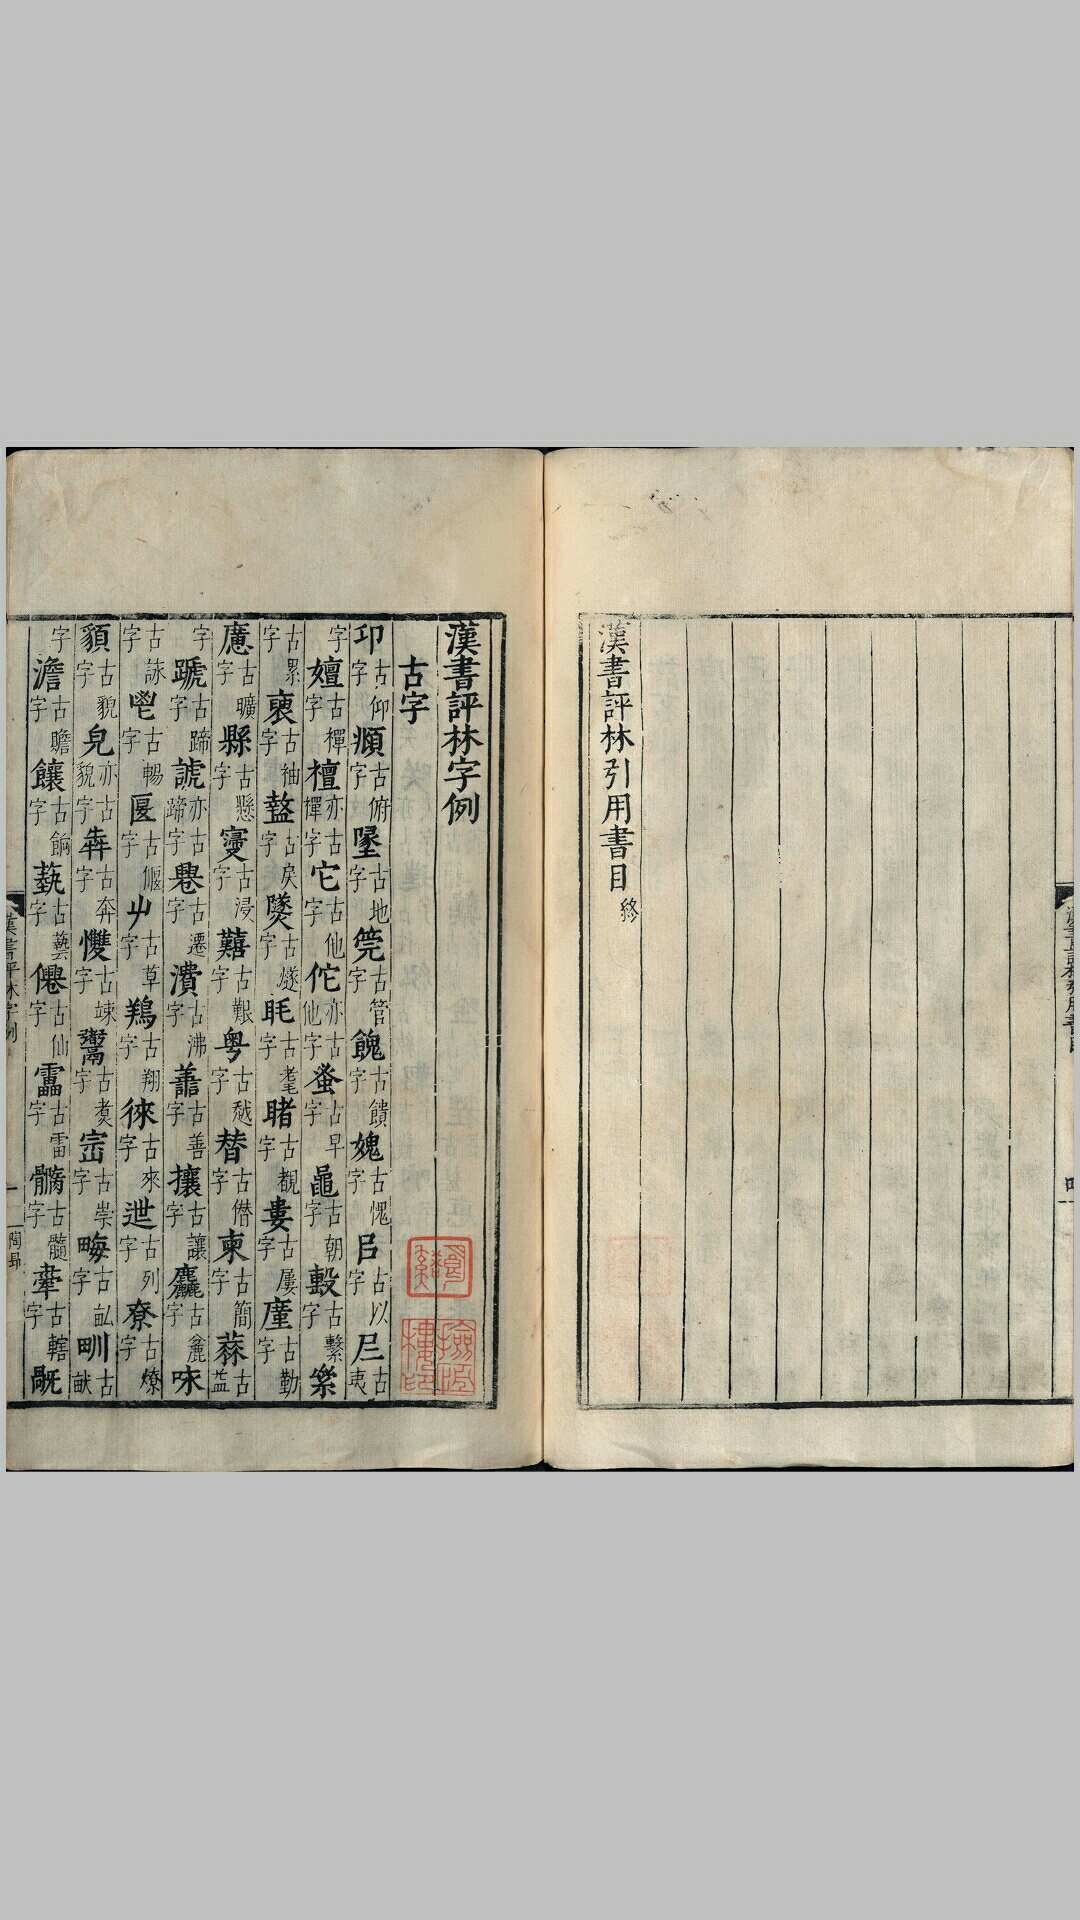 漢書評林引用書目終
漢書評林字例
古字
卬古仰字 頫古俯字 墬古地字 筦古管字 餽古饋字 媿古愧字 㠯古以字 𡰥古夷
字 嬗古禪字 檀亦古禪字 它古他字 佗亦古他字 蚤古早字 鼂古朝字 古繫字 絫
古累字 褏古袖字 盭古戾字 古燧字 眊古耄字 睹古覩字 婁古屢字 廑古勤字
古曠字 縣古懸字 寖古浸字 囏古艱字 粤古越字 朁古僭字 柬古簡字 古益
字 蹏古蹄字 謕亦古蹄字 䙴古遷字 濆古沸字 譱古善字 攘古讓字 麤古麁字 咏
古詠字 鬯古暢字 匽古偃字 屮古草字 鴹古翔字 徠古來字 迣古列字 尞古燎字
䫉古貌字 皃亦古貌字 犇古奔字 㦼古竦字 鬻古煑字 崈古崇字 畮古畝字 甽古畎
字 澹古贍字 饟古餉字 蓺古藝字 僊古仙字 靁古雷字 古髓字 舝古轄字
漢書評林字例 一